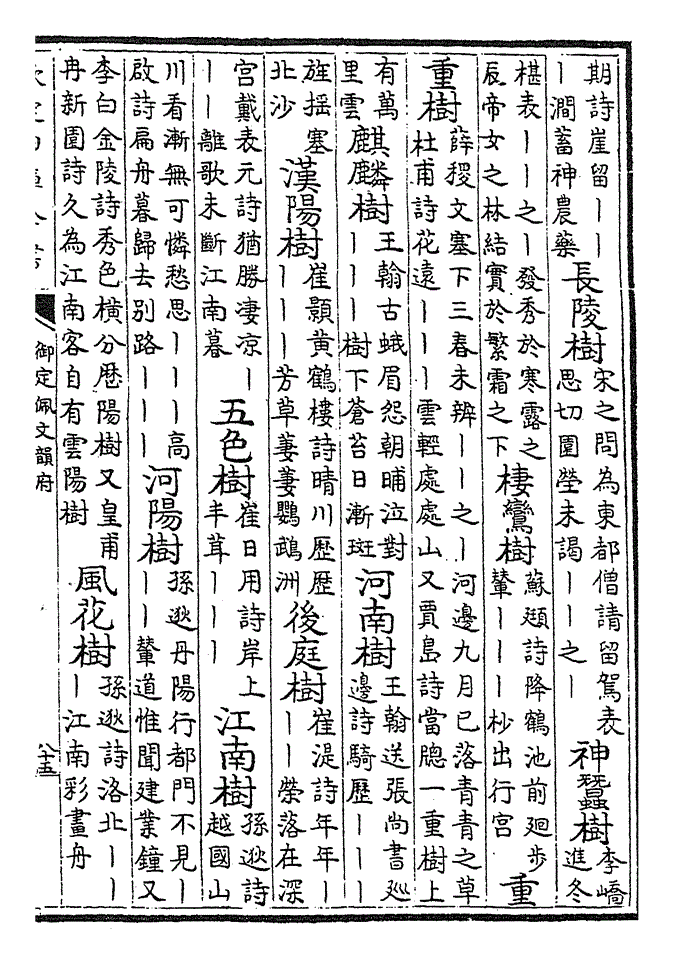 期詩崖留丨丨
丨澗蓄神農藥
長陵樹
宋之問為東都僧請留駕表
思切園塋未謁丨丨之丨
神蠶樹
李嶠
進冬
椹表丨丨之丨發秀於寒露之
辰帝女之林結實於繁霜之下
棲鸞樹
蘇頲詩降鶴池前廻步
輦丨丨丨杪出行宮
重
重樹
薛稷文塞下三春未辨丨丨之丨河邊九月已落青青之草
杜甫詩花遠丨丨丨雲輕處處山又賈島詩當牕一重樹上
有萬
里雲
麒麟樹
王翰古蛾眉怨朝晡泣對
丨丨丨樹下蒼苔日漸斑
河南樹
王翰送張尚書廵
邊詩騎歷丨丨丨
旌揺塞
北沙
漢陽樹
崔顥黄鶴樓詩晴川歴歴
丨丨丨芳草萋萋鸚鵡洲
後庭樹
崔湜詩年年丨
丨丨榮落在深
宮戴表元詩猶勝凄凉丨
丨丨離歌未斷江南暮
五色樹
崔日用詩岸上
丰茸丨丨丨
江南樹
孫逖詩
越國山
川看漸無可憐愁思丨丨丨高
啟詩扁舟暮歸去别路丨丨丨
河陽樹
孫逖丹陽行都門不見丨
丨丨輦道惟聞建業鐘又
李白金陵詩秀色横分歴陽樹又皇甫
冉新園詩久為江南客自有雲陽樹
風花樹
孫逖詩洛北丨丨
丨江南彩畫舟
御定佩文韻府